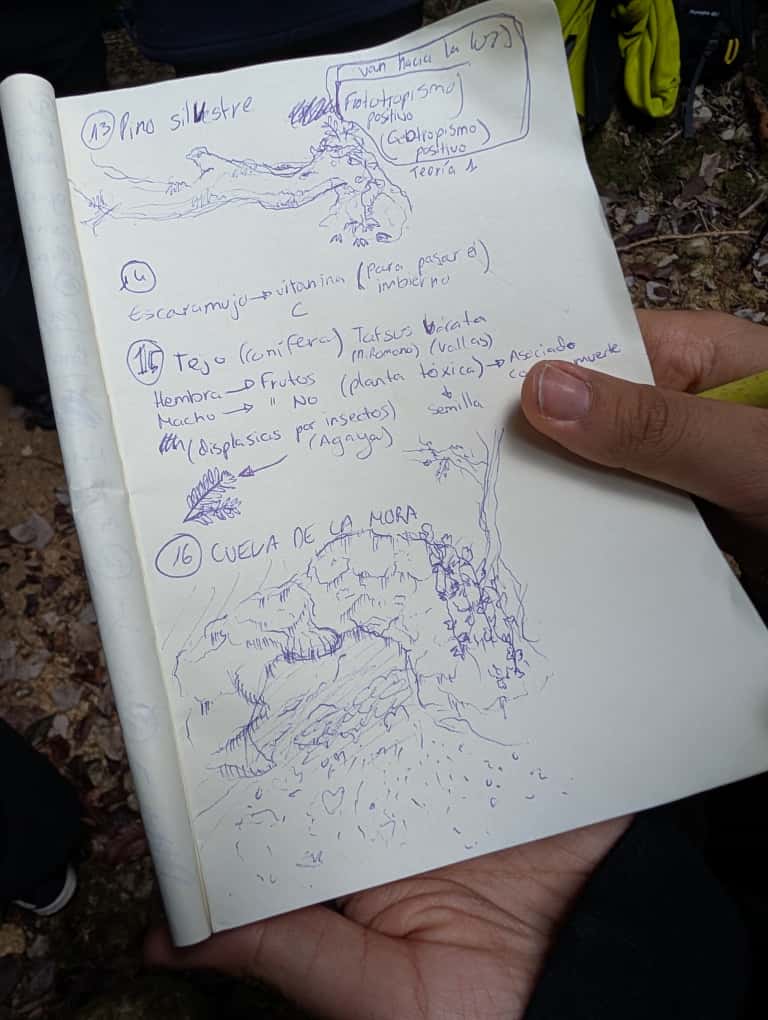 van hacia la luz)
13 Pino silvestre
Fototropismo
positivo
(Geotropismo)
positivo
Teoría 1
14
Escaramujo → vitamina (para pasar el
C imbierno
15 Tejo (conífera) Tatsus bacata
(n. Romano) (vallas)
Hembra → Frutos (planta tóxica) → Asociado
Macho → " No semilla muerte
(displasias por insectos)
(Agaya)
16 CUEVA DE LA MORA